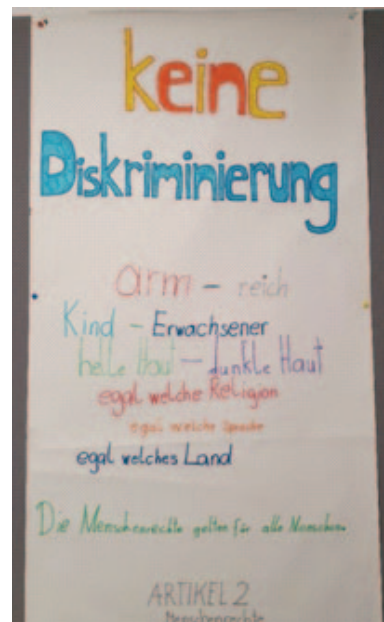 keine
Diskriminierung
arm – reich
Kind – Erwachsener
helle Haut – dunkle Haut
egal welche Religion
egal welche Sprache
egal welches Land
Die Menschenrechte gelten für alle Menschen.
ARTIKEL 2
Menschenrechte